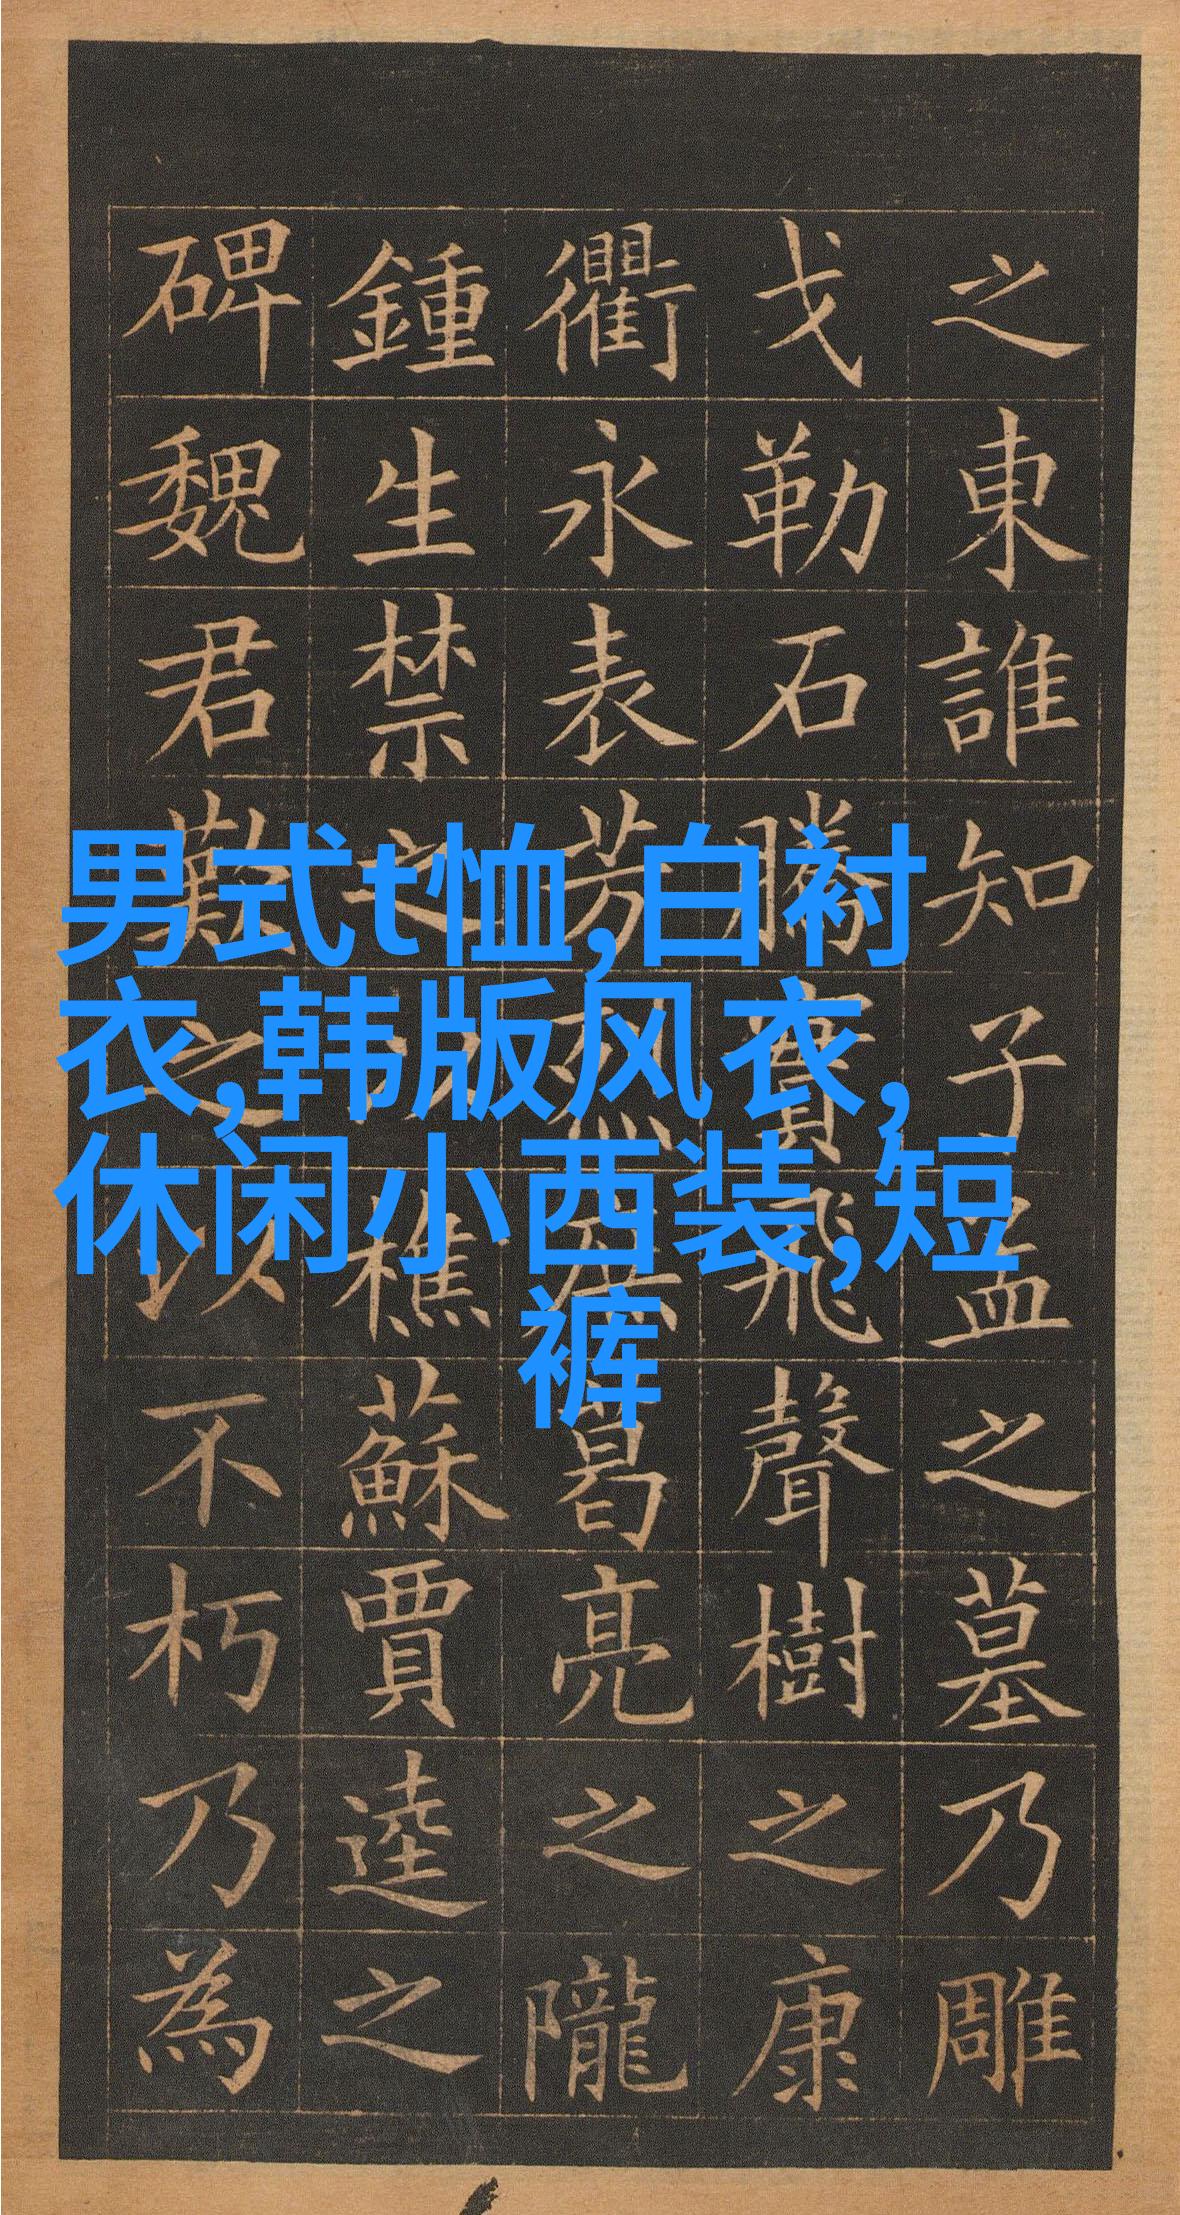 之東誰知子孟之墓乃雕
戈勒石騰實飛聲樹之康
衢永表芳烈庶葛亮之隴
鍾生禁之以樵蘇賈逵之
碑魏君歎之以不朽乃為
男式t恤,白衬
衣,韩版风衣,
休闲小西装,短
裤